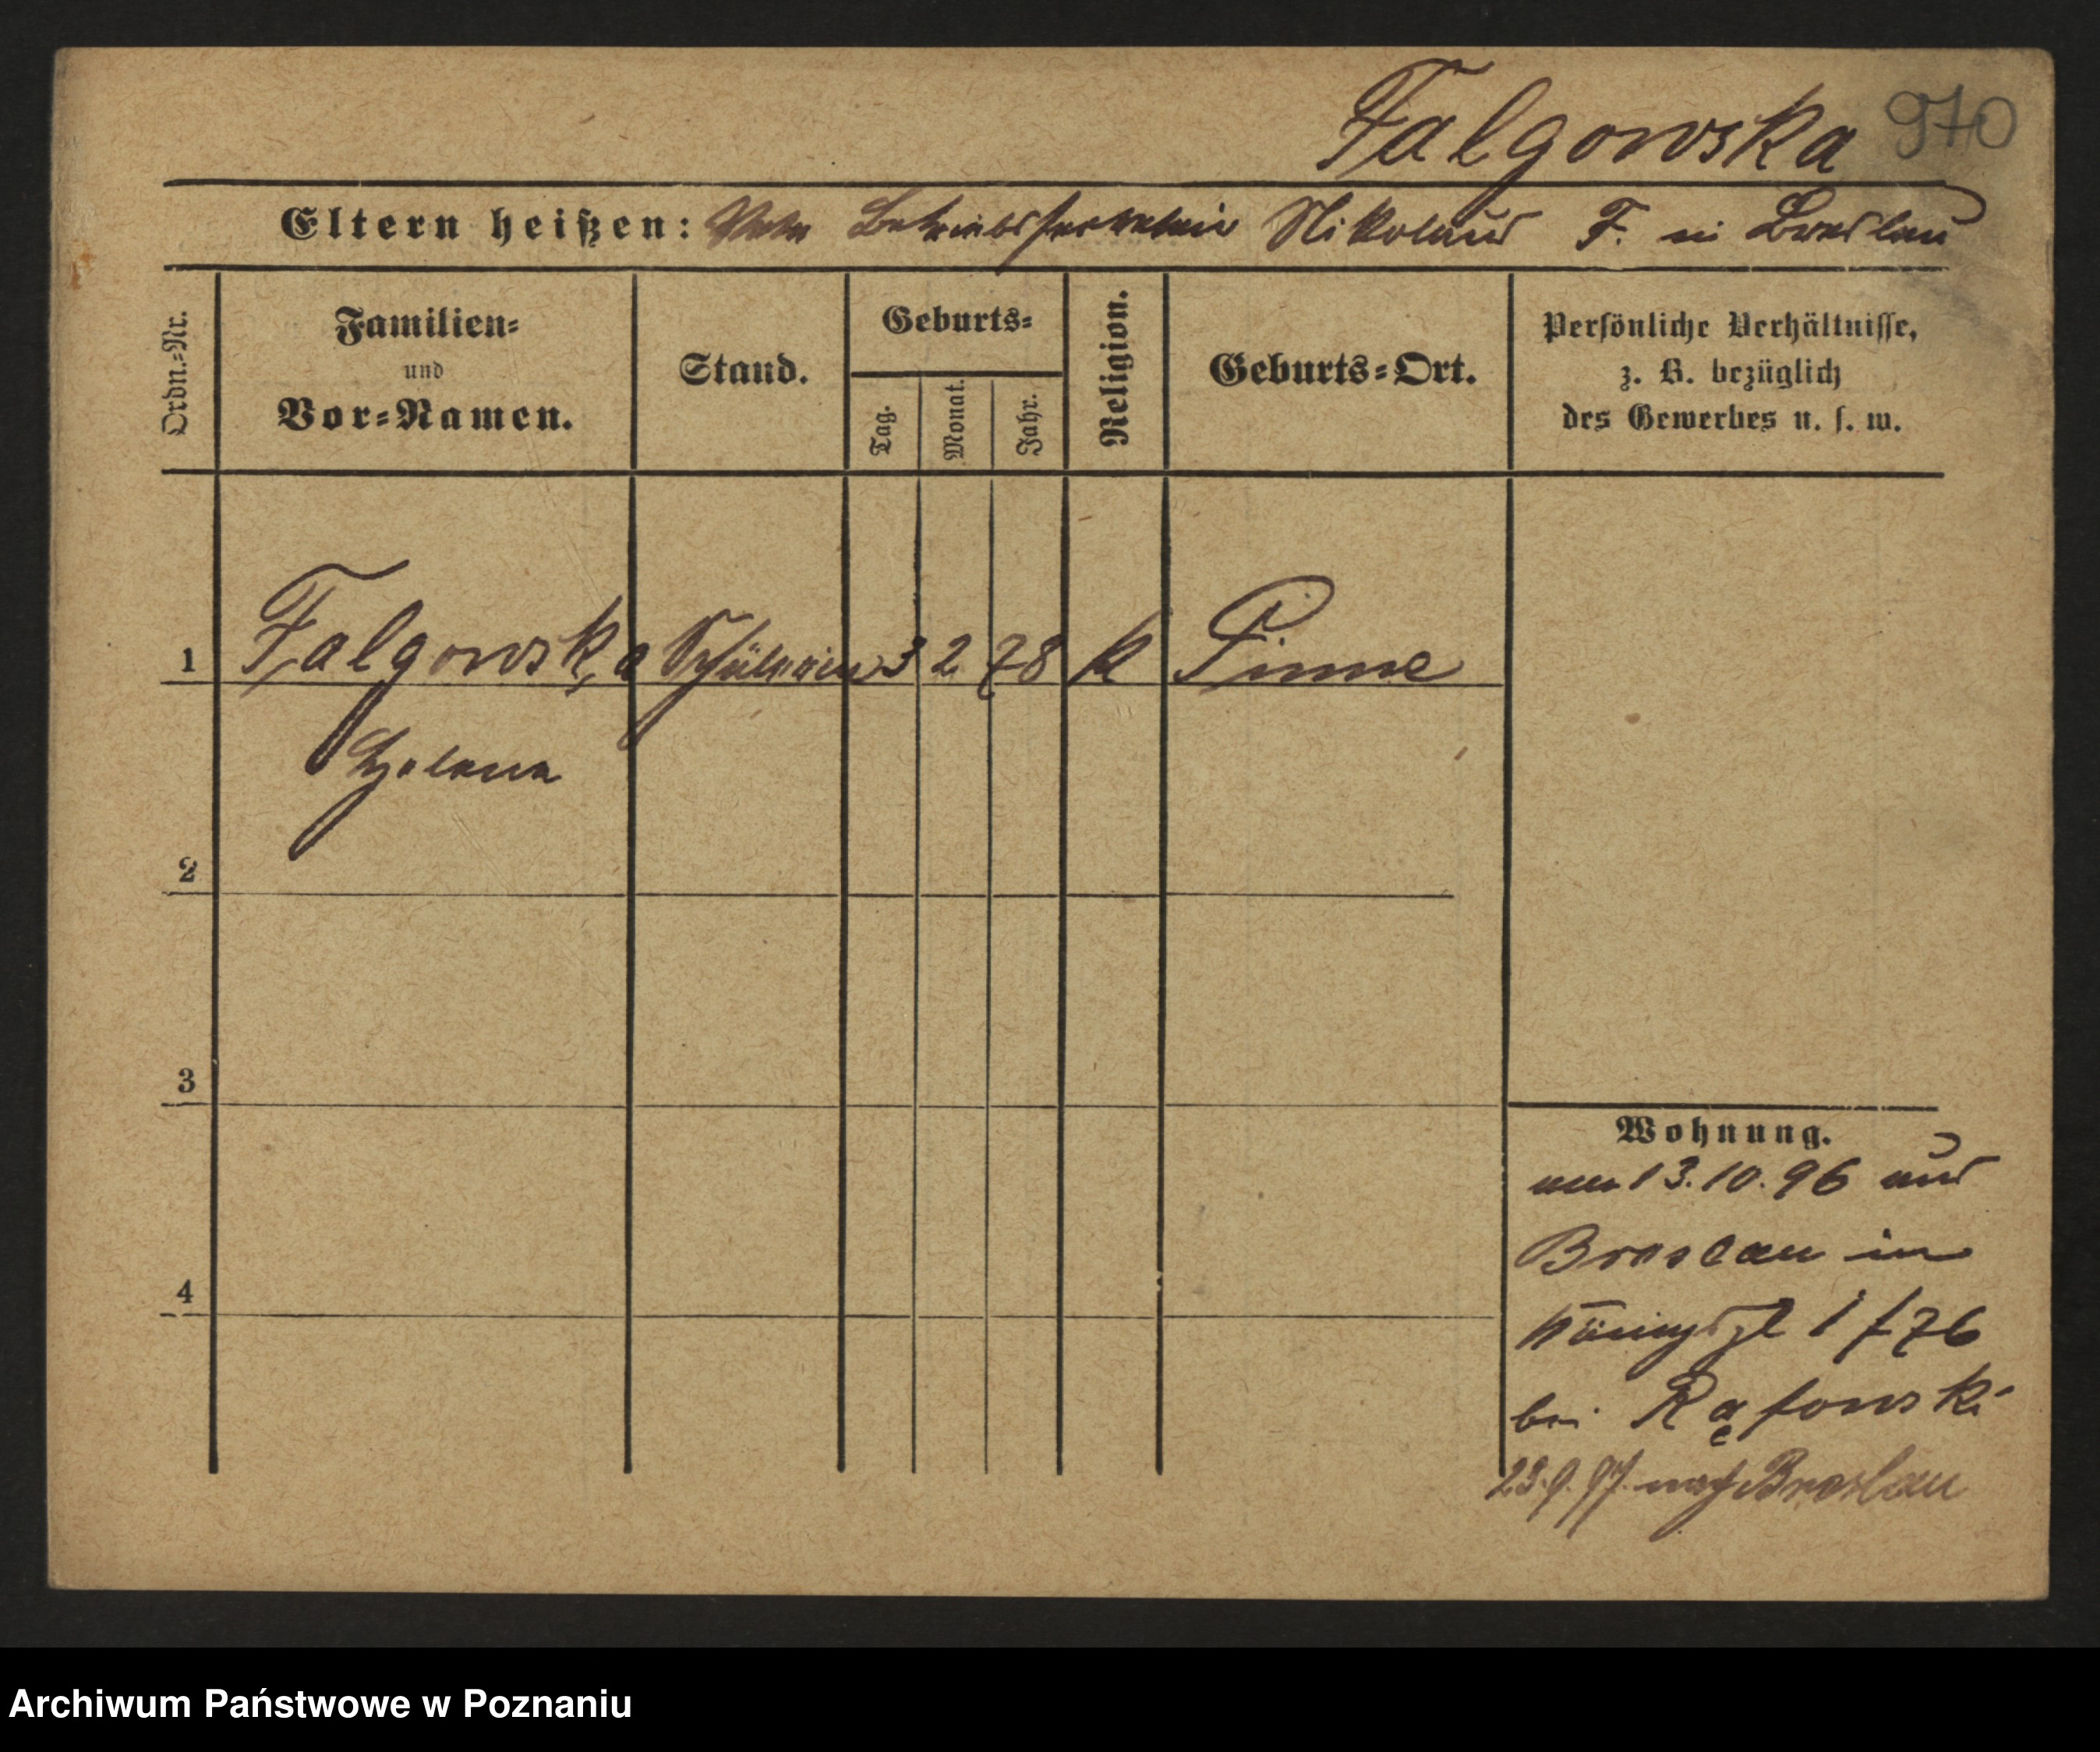 Falgowska 970
Eltern heißen: Vater Betriebssekretair Nikolaus F. in Breslau
Ordn.=Nr.
Familien=
und
Vor=Namen.
Stand.
Geburts=
Tag.
Monat.
Jahr.
Religion.
Geburts=Ort.
Persönliche Verhältnisse,
z. B. bezüglich
des Gewerbes u. s. w.
1 Falgowska Schülerin 3 2 78 k Pinne
Helena
2
3
4
Wohnung.
am 13.10.96 aus
Breslau in
bei
23.9.97. nach Breslau
Archiwum Państwowe w Poznaniu